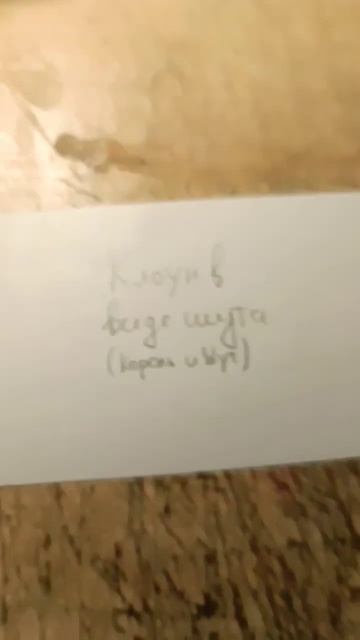 Клоун в
виде шута
(Король и Шут)